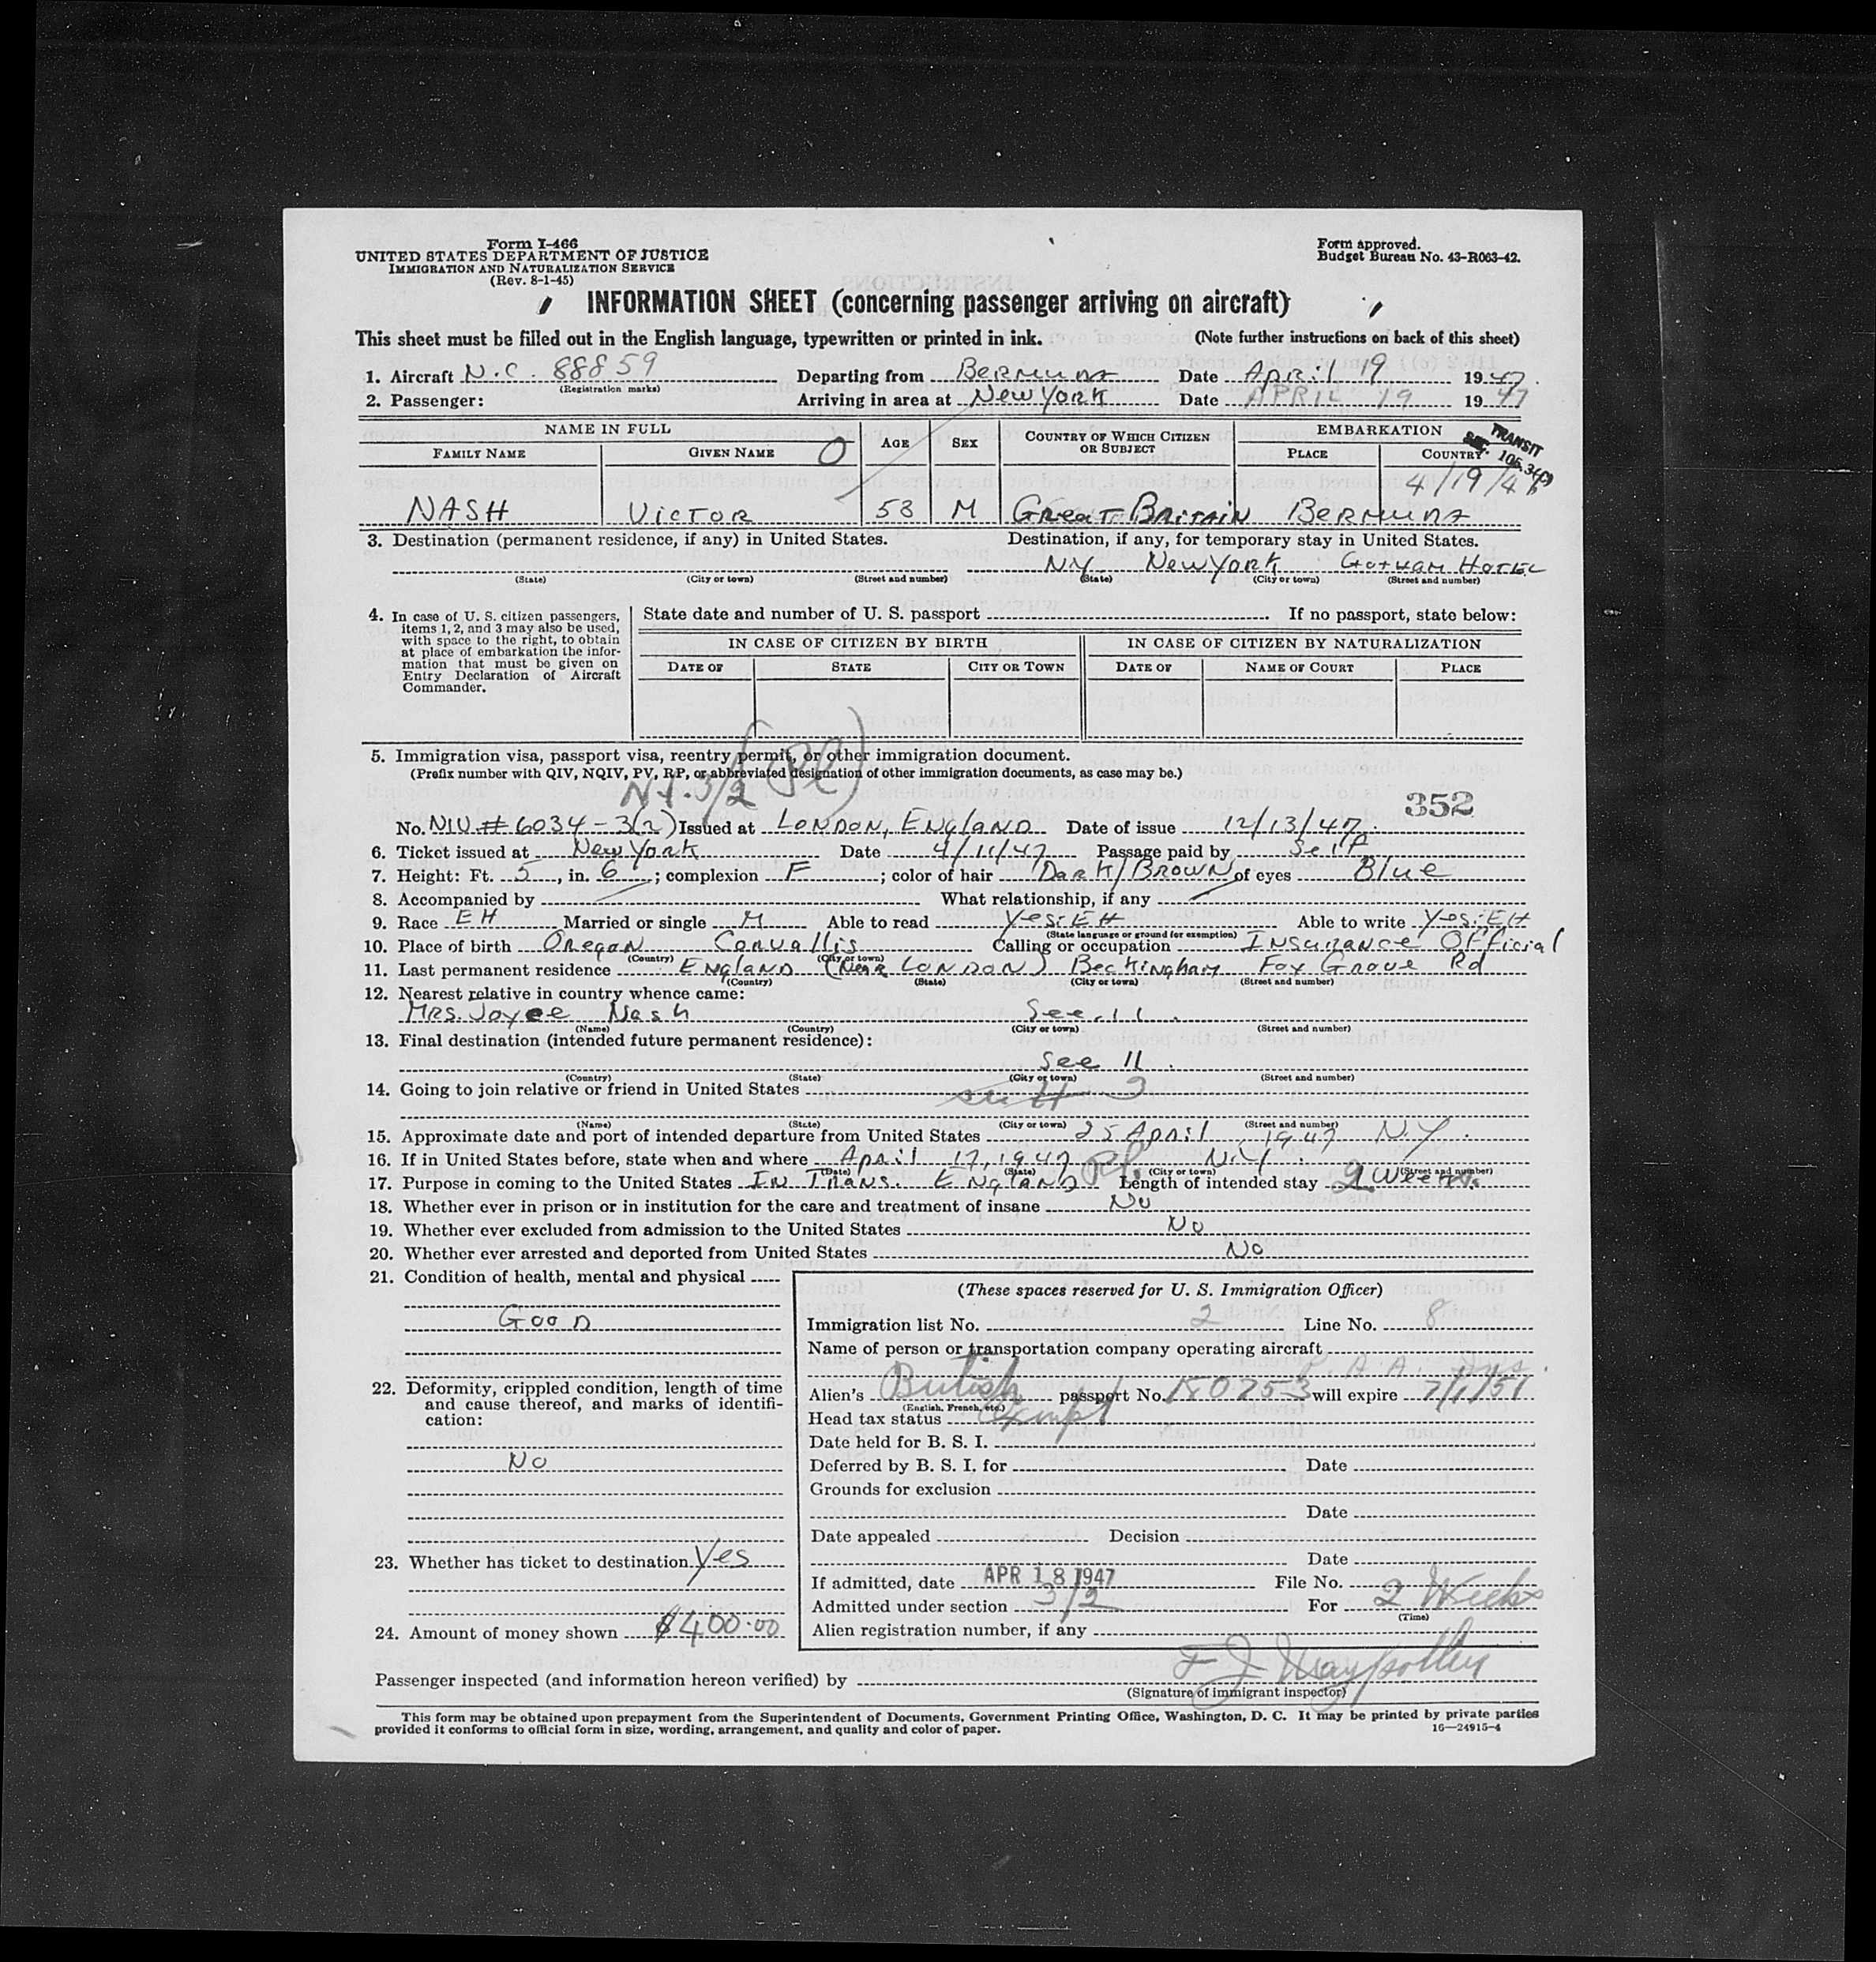 Form I-466
UNITED STATES DEPARTMENT OF JUSTICE
IMMIGRATION AND NATURALIZATION SERVICE
(Rev. 8-1-45)
Form approved.
Budget Bureau No. 43-R063-42.
INFORMATION SHEET (concerning passenger arriving on aircraft)
This sheet must be filled out in the English language, typewritten or printed in ink. (Note further instructions on back of this sheet)
1. Aircraft N.C. 88859 Departing from BERMUDA Date APRIL 19 1947
(Registration marks)
2. Passenger: Arriving in area at NEW YORK Date APRIL 19 1947
NAME IN FULL AGE SEX COUNTRY OF WHICH CITIZEN OR SUBJECT EMBARKATION
FAMILY NAME GIVEN NAME O PLACE COUNTRY
TRANSIT
SEC. 106.3
4/19/4
NASH VICTOR 58 M GREAT BRITAIN BERMUDA
3. Destination (permanent residence, if any) in United States. Destination, if any, for temporary stay in United States.
NY NEW YORK GOTHAM HOTEL
(State) (City or town) (Street and number) (State) (City or town) (Street and number)
4. In case of U. S. citizen passengers, items 1, 2, and 3 may also be used, with space to the right, to obtain at place of embarkation the information that must be given on Entry Declaration of Aircraft Commander.
State date and number of U. S. passport If no passport, state below:
IN CASE OF CITIZEN BY BIRTH IN CASE OF CITIZEN BY NATURALIZATION
DATE OF STATE CITY OR TOWN DATE OF NAME OF COURT PLACE
5. Immigration visa, passport visa, reentry permit, or other immigration document.
(Prefix number with QIV, NQIV, PV, RP, or abbreviated designation of other immigration documents, as case may be.)
3/2
352
No. NIV # 6034-3(2) Issued at LONDON, ENGLAND Date of issue 12/13/47
6. Ticket issued at New York Date 4/11/47 Passage paid by Self
7. Height: Ft. 5, in. 6; complexion F; color of hair DARK/BROWN of eyes Blue
8. Accompanied by What relationship, if any
9. Race EH Married or single M Able to read Yes: EH Able to write Yes: EH
(State language or ground for exemption)
10. Place of birth Oregon Corvallis Calling or occupation INSURANCE Official
(Country) (City or town)
11. Last permanent residence ENGLAND (Near LONDON) Beckingham Fox Grove Rd
(Country) (State) (City or town) (Street and number)
12. Nearest relative in country whence came:
MRS. Joyce Nash See 11.
(Name) (Country) (City or town) (Street and number)
13. Final destination (intended future permanent residence):
See 11.
(Country) (State) (City or town) (Street and number)
14. Going to join relative or friend in United States 3
(Name) (State) (City or town) (Street and number)
15. Approximate date and port of intended departure from United States 25 April 1947 N.Y.
16. If in United States before, state when and where April 17, 1947 N.Y.
(Date) (State) (City or town) (Street and number)
17. Purpose in coming to the United States IN TRANS. ENGLAND Length of intended stay 2 Weeks
18. Whether ever in prison or in institution for the care and treatment of insane No
19. Whether ever excluded from admission to the United States No
20. Whether ever arrested and deported from United States No
21. Condition of health, mental and physical
GOOD
22. Deformity, crippled condition, length of time and cause thereof, and marks of identification:
No
23. Whether has ticket to destination Yes
24. Amount of money shown $400.00
(These spaces reserved for U. S. Immigration Officer)
Immigration list No. 2 Line No. 8
Name of person or transportation company operating aircraft
P. A. A.
Alien's British passport No. 180253 will expire 7/1/51
(English, French, etc.)
Head tax status exempt
Date held for B. S. I.
Deferred by B. S. I. for Date
Grounds for exclusion
Date
Date appealed Decision
Date
If admitted, date APR 18 1947 File No.
Admitted under section 3/2 For 2 Weeks
(Time)
Alien registration number, if any
Passenger inspected (and information hereon verified) by F J
(Signature of immigrant inspector)
This form may be obtained upon prepayment from the Superintendent of Documents, Government Printing Office, Washington, D. C. It may be printed by private parties
provided it conforms to official form in size, wording, arrangement, and quality and color of paper. 16—24915-4